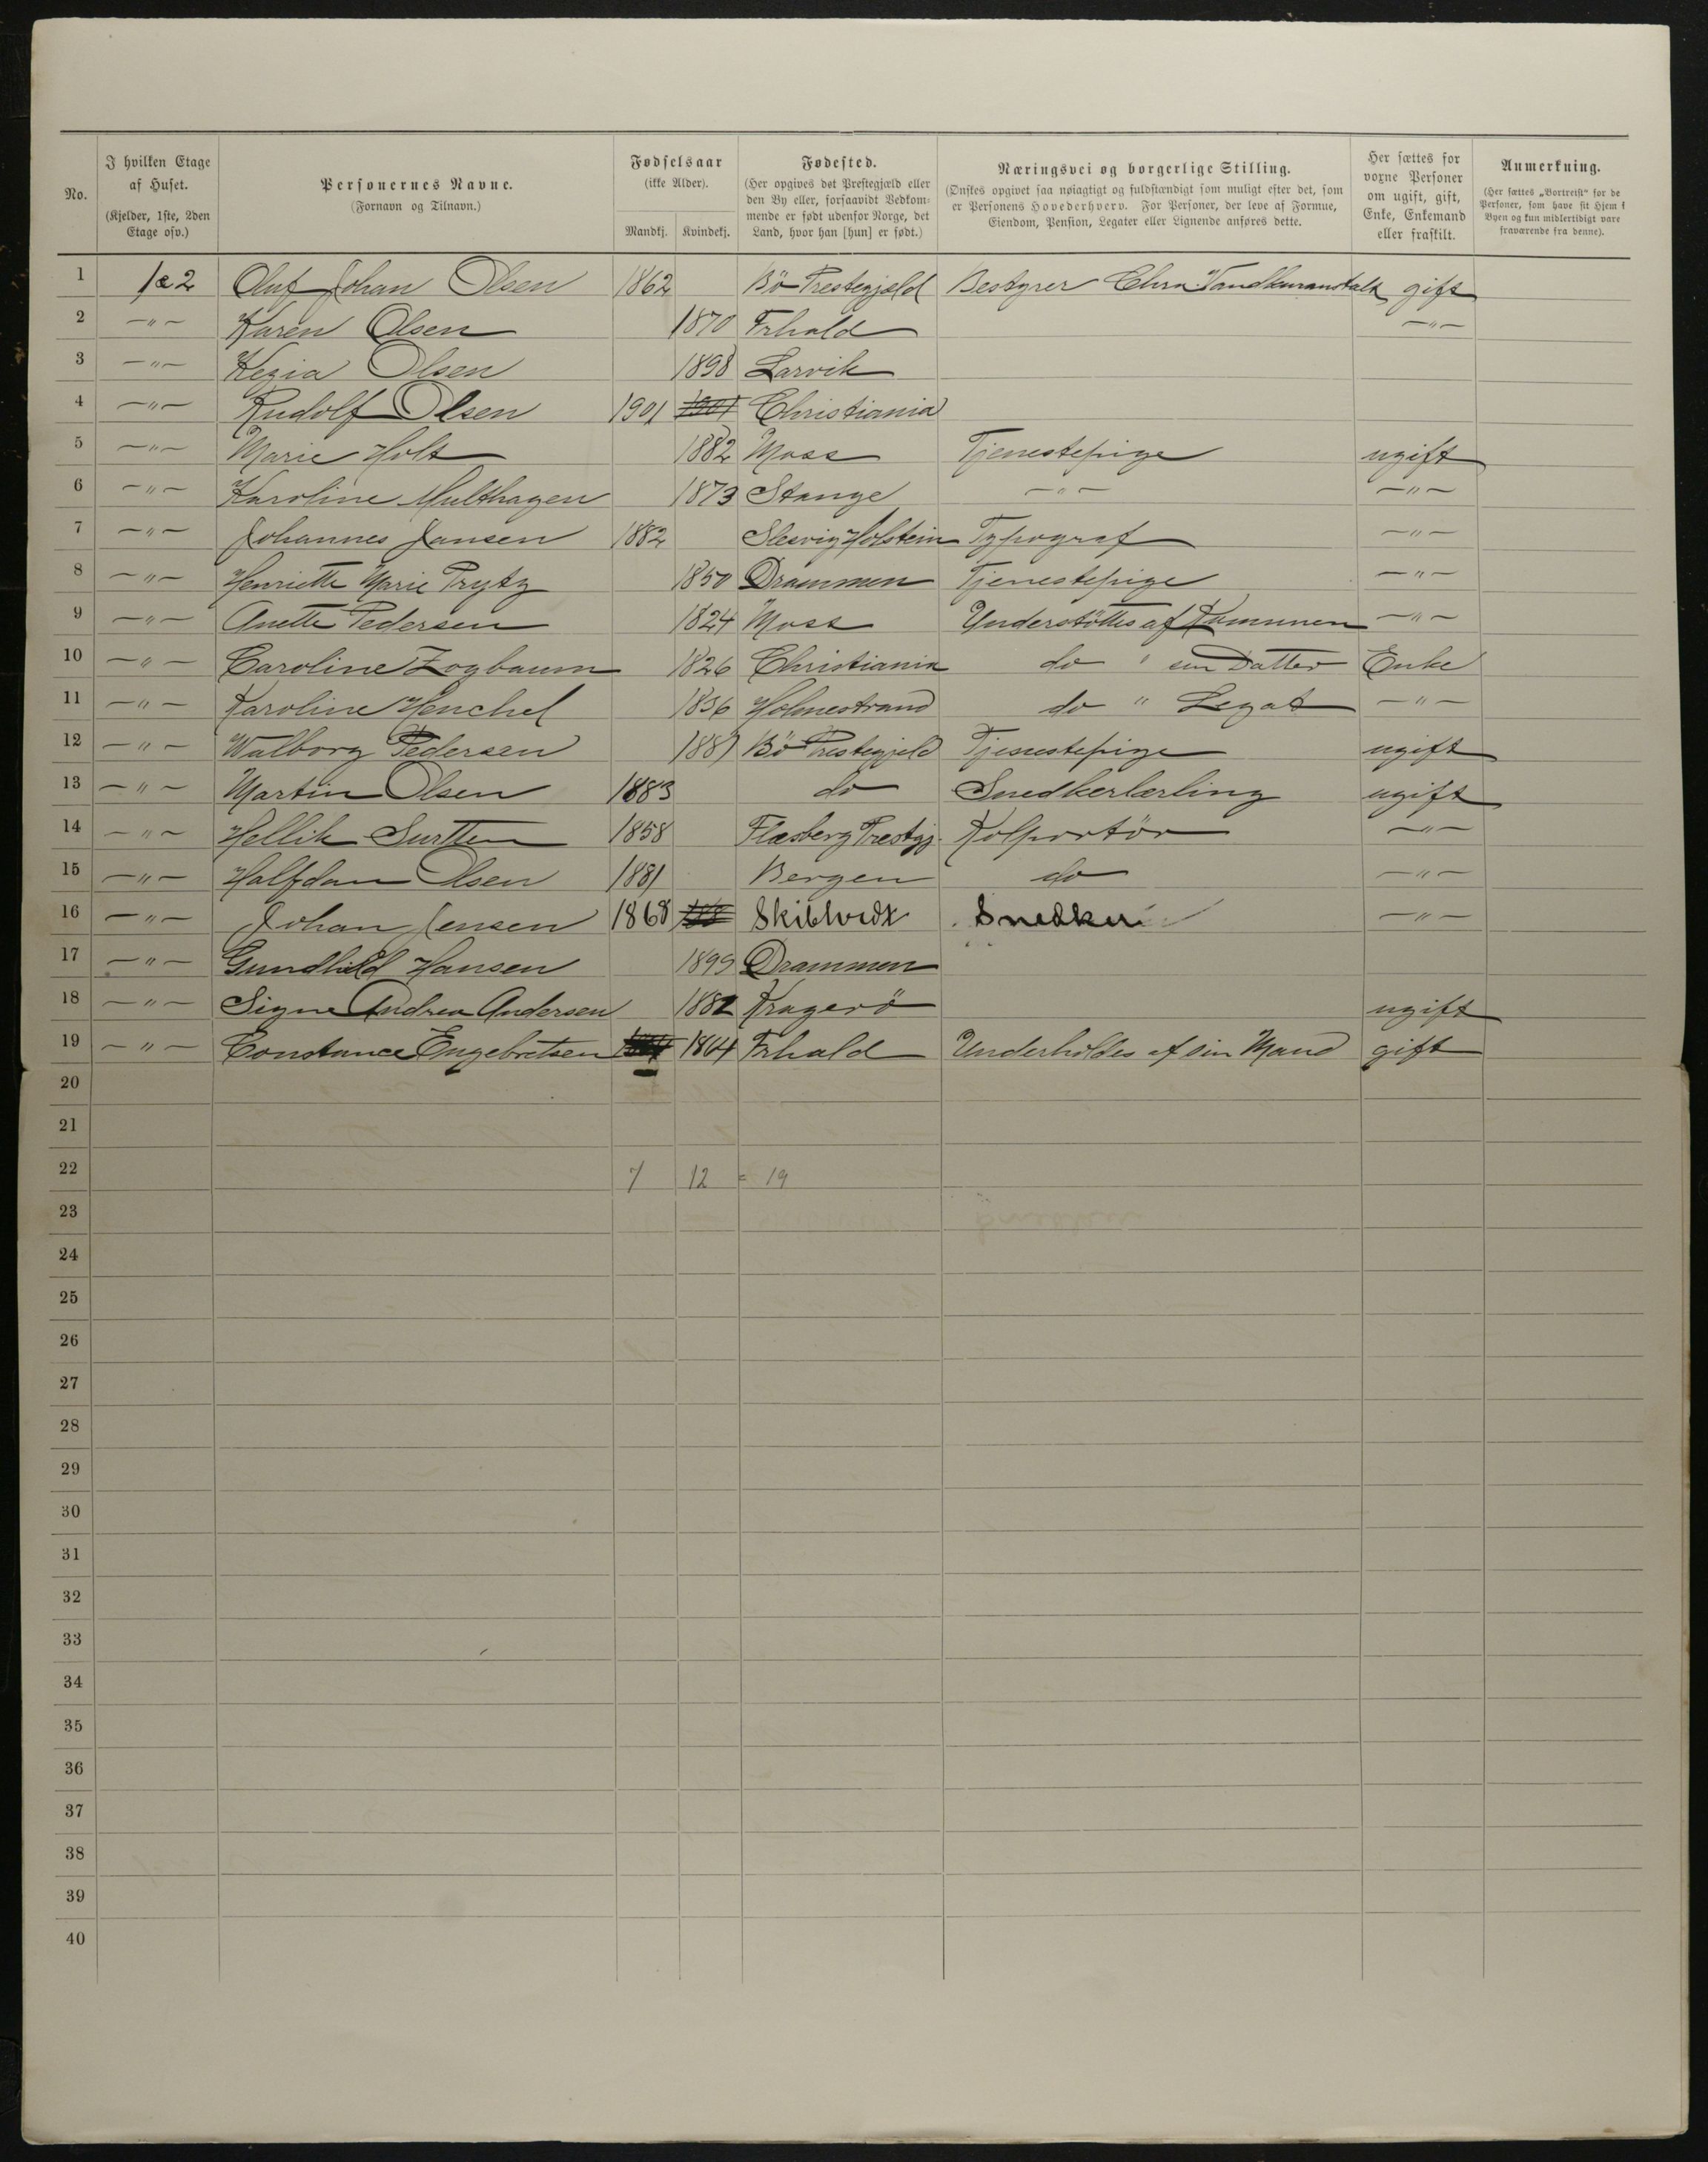 No. I hvilken Etage af Huset. (Kjelder, 1ste, 2den Etage osv.) Personernes Navne. (Fornavn og Tilnavn.) Fødselsaar (ikke Alder). Mandkj. Kvindekj. Fødested. (Her opgives det Prestegjæld eller den By eller, forsaavidt Vedkommende er født udenfor Norge, det Land, hvor han [hun] er født.) Næringsvei og borgerlige Stilling. (Ønskes opgivet saa nøiagtigt og fuldstændigt som muligt efter det, som er Personens Hovederhverv. For Personer, der leve af Formue, Eiendom, Pension, Legater eller Lignende anføres dette. Her sættes for voxne Personer om ugift, gift, Enke, Enkemand eller fraskilt. Anmerkning. (Her sættes „Bortreist“ for de Personer, som have sit Hjem i Byen og kun midlertidigt være fraværende fra denne).
1 1 & 2 Oluf Johan Olsen 1862 Bö Prestegjæld Bestyrer Chra. Vandkuranstalt gift
2 —"— Karen Olsen 1870 Frhald —"—
3 —"— Kezia Olsen 1898 Larvik
4 —"— Rudolf Olsen 1901 1901 Christiania
5 —"— Marie Holt 1882 Moss Tjenestepige ugift
6 —"— Karoline Multhagen 1873 Stange —"— —"—
7 —"— Johannes Jansen 1882 Slesvig Holstein Typograf —"—
8 —"— Henriette Marie Prytz 1850 Drammen Tjenestepige —"—
9 —"— Anette Pedersen 1824 Moss Understöttes af Kommunen —"—
10 —"— Caroline Zogbaum 1826 Christiania do " sin Datter Enke
11 —"— Karoline Henchel 1836 Holmestrand do " Legat —"—
12 —"— Walborg Pedersen 1881 Bö Prestegjeld Tjenestepige ugift
13 —"— Martin Olsen 1883 do Snedkerlærling ugift
14 —"— Hellik 1858 Flesberg Prestgj. Kolportör —"—
15 —"— Halfdan Olsen 1881 Bergen do —"—
16 —"— Johan Jensen 1868 Skibtvedt Snedker —"—
17 —"— Gundhild Hansen 1899 Drammen
18 —"— Signe Andrea Andersen 1882 Kragerö ugift
19 —"— Constance Engebretsen 1864 Frhald Underholdes af sin Mand gift
20
21
22 7 12 = 19
23
24
25
26
27
28
29
30
31
32
33
34
35
36
37
38
39
40